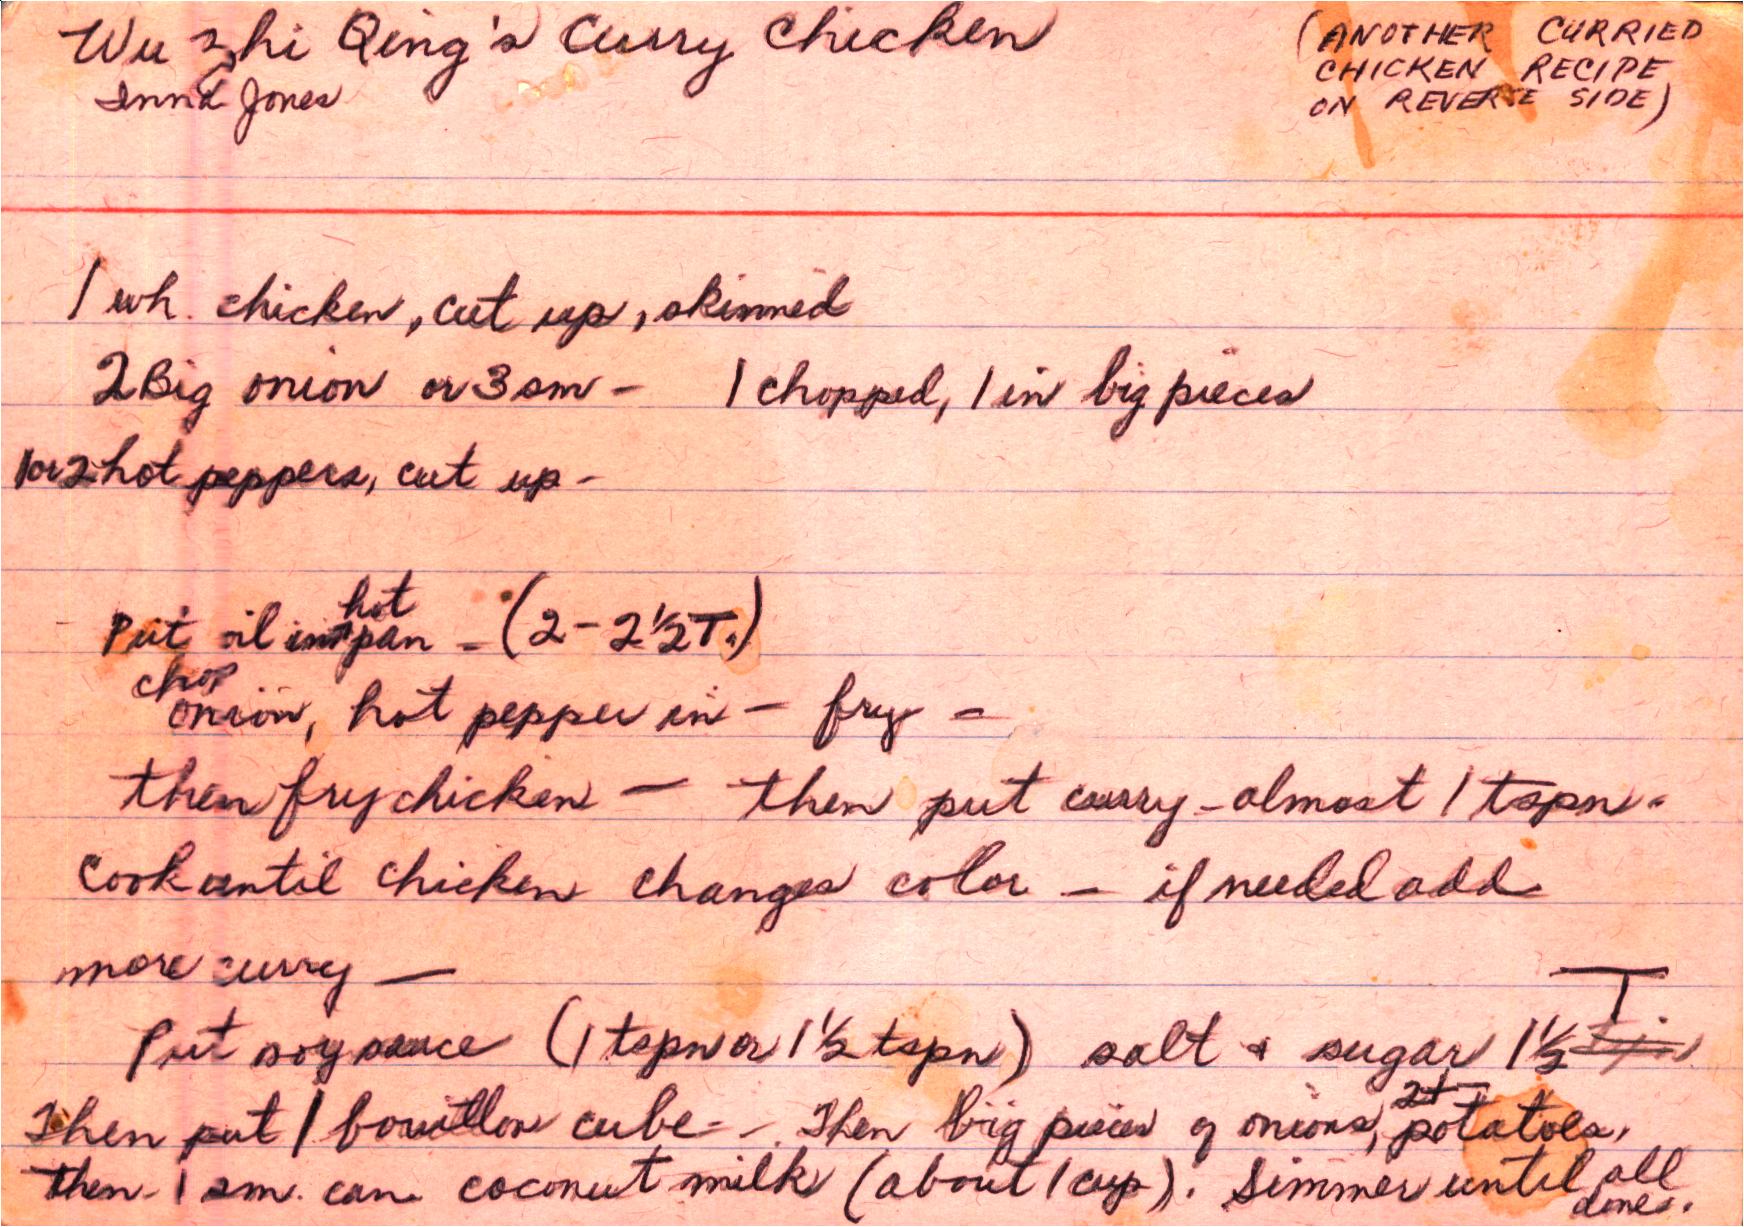 Wu Zhi Qing's Curry Chicken
Inna Jones
(ANOTHER CURRIED
CHICKEN RECIPE
ON REVERSE SIDE)
1 wh. chicken, cut up, skinned
2 Big onion or 3 sm - 1 chopped, 1 in big pieces
1 or 2 hot peppers, cut up -
Put oil in hot pan - (2 - 2 1/2 T.)
chop onion, hot pepper in - fry -
then fry chicken - then put curry - almost 1 tspn.
Cook until chicken changes color - if needed add
more curry -
Put soy sauce (1 tspn or 1 1/2 tspn) salt & sugar 1 1/2 T
Then put 1 bouillon cube - . Then big pieces of onions, potatoes.
then - 1 sm. can coconut milk (about 1 cup). Simmer until all
done.